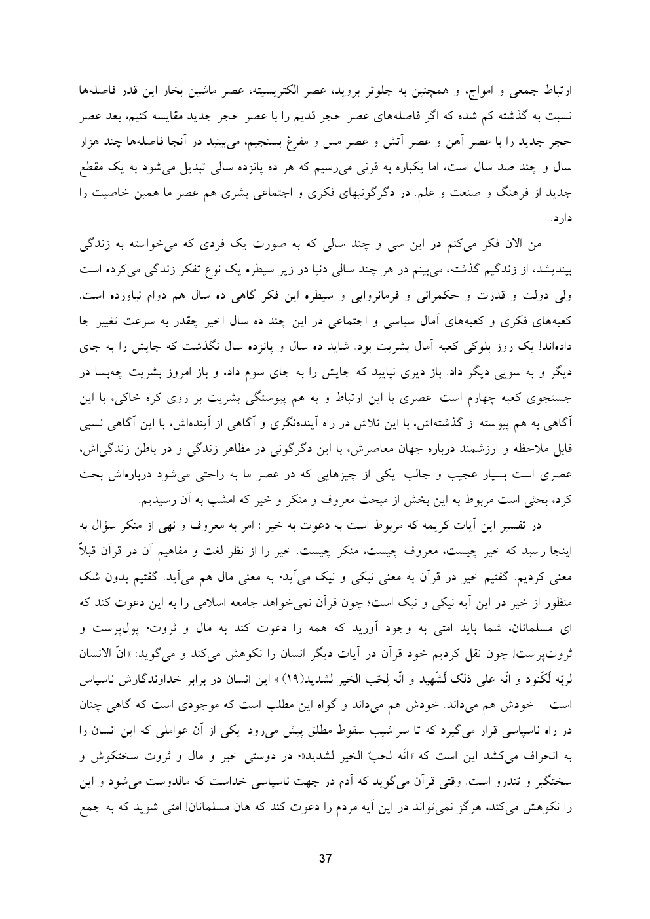 ارتباط جمعی و امواج، و همچنین به جلوتر بروید، عصر الکتریسیته، عصر ماشین بخار این قدر فاصله‌ها
نسبت به گذشته کم شده که اگر فاصله‌های عصر حجر قدیم را با عصر حجر جدید مقایسه کنیم، بعد عصر
حجر جدید را با عصر آهن و عصر آتش و عصر مس و مفرغ بسنجیم، می‌بینید در آنجا فاصله‌ها چند هزار
سال و چند صد سال است، اما یکباره به قرنی می‌رسیم که هر ده پانزده سالی تبدیل می‌شود به یک مقطع
جدید از فرهنگ و صنعت و علم. در دگرگونیهای فکری و اجتماعی بشری هم عصر ما همین خاصیت را
دارد.
من الان فکر می‌کنم در این سی و چند سالی که به صورت یک فردی که می‌خواسته به زندگی
بیندیشد، از زندگیم گذشت، می‌بینم در هر چند سالی دنیا در زیر سیطره یک نوع تفکر زندگی می‌کرده است
ولی دولت و قدرت و حکمرانی و فرمانروایی و سیطره این فکر گاهی ده سال هم دوام نیاورده است.
کعبه‌های فکری و کعبه‌های آمال سیاسی و اجتماعی در این چند ده سال اخیر چقدر به سرعت تغییر جا
داده‌اند! یک روز بلوکی کعبه آمال بشریت بود. شاید ده سال و پانزده سال نگذشت که جایش را به جای
دیگر و به سویی دیگر داد. باز دیری نپایید که جایش را به جای سوم داد، و باز امروز بشریت چه‌بسا در
جستجوی کعبه چهارم است. عصری با این ارتباط و به هم پیوستگی بشریت بر روی کره خاکی، با این
آگاهی به هم پیوسته از گذشته‌اش، با این تلاش در راه آینده‌نگری و آگاهی از آینده‌اش، با این آگاهی نسبی
قابل ملاحظه و ارزشمند درباره جهان معاصرش، با این دگرگونی در مظاهر زندگی و در باطن زندگی‌اش،
عصری است بسیار عجیب و جالب. یکی از چیزهایی که در عصر ما به راحتی می‌شود درباره‌اش بحث
کرد، بحثی است مربوط به این بخش از مبحث معروف و منکر و خیر که امشب به آن رسیدیم.
در تفسیر این آیات کریمه که مربوط است به دعوت به خیر ؛ امر به معروف و نهی از منکر سؤال به
اینجا رسید که خیر چیست، معروف چیست، منکر چیست. خیر را از نظر لغت و مفاهیم آن در قرآن قبلاً
معنی کردیم. گفتیم خیر در قرآن به معنی نیکی و نیک می‌آید؛ به معنی مال هم می‌آید. گفتیم بدون شک
منظور از خیر در این آیه نیکی و نیک است؛ چون قرآن نمی‌خواهد جامعه اسلامی را به این دعوت کند که
ای مسلمانان، شما باید امتی به وجود آورید که همه را دعوت کند به مال و ثروت؛ پول‌پرست و
ثروت‌پرست! چون نقل کردیم خود قرآن در آیات دیگر انسان را نکوهش می‌کند و می‌گوید: «انّ الانسان
لربّه لَکَنود و انّه علی ذلک لَشَهید و انّه لِحُب الخیر لشدید(۱۹)» این انسان در برابر خداوندگارش ناسپاس
است . خودش هم می‌داند. خودش هم می‌داند و گواه این مطلب است که موجودی است که گاهی چنان
در راه ناسپاسی قرار می‌گیرد که تا سراشیب سقوط مطلق پیش می‌رود. یکی از آن عواملی که این انسان را
به انحراف می‌کشد این است که «انّه لحبّ الخیر لشدید»؛ در دوستی خیر و مال و ثروت سختکوش و
سختگیر و تندرو است. وقتی قرآن می‌گوید که آدم در جهت ناسپاسی خداست که مالدوست می‌شود و این
را نکوهش می‌کند، هرگز نمی‌تواند در این آیه مردم را دعوت کند که هان مسلمانان! امتی شوید که به جمع
37